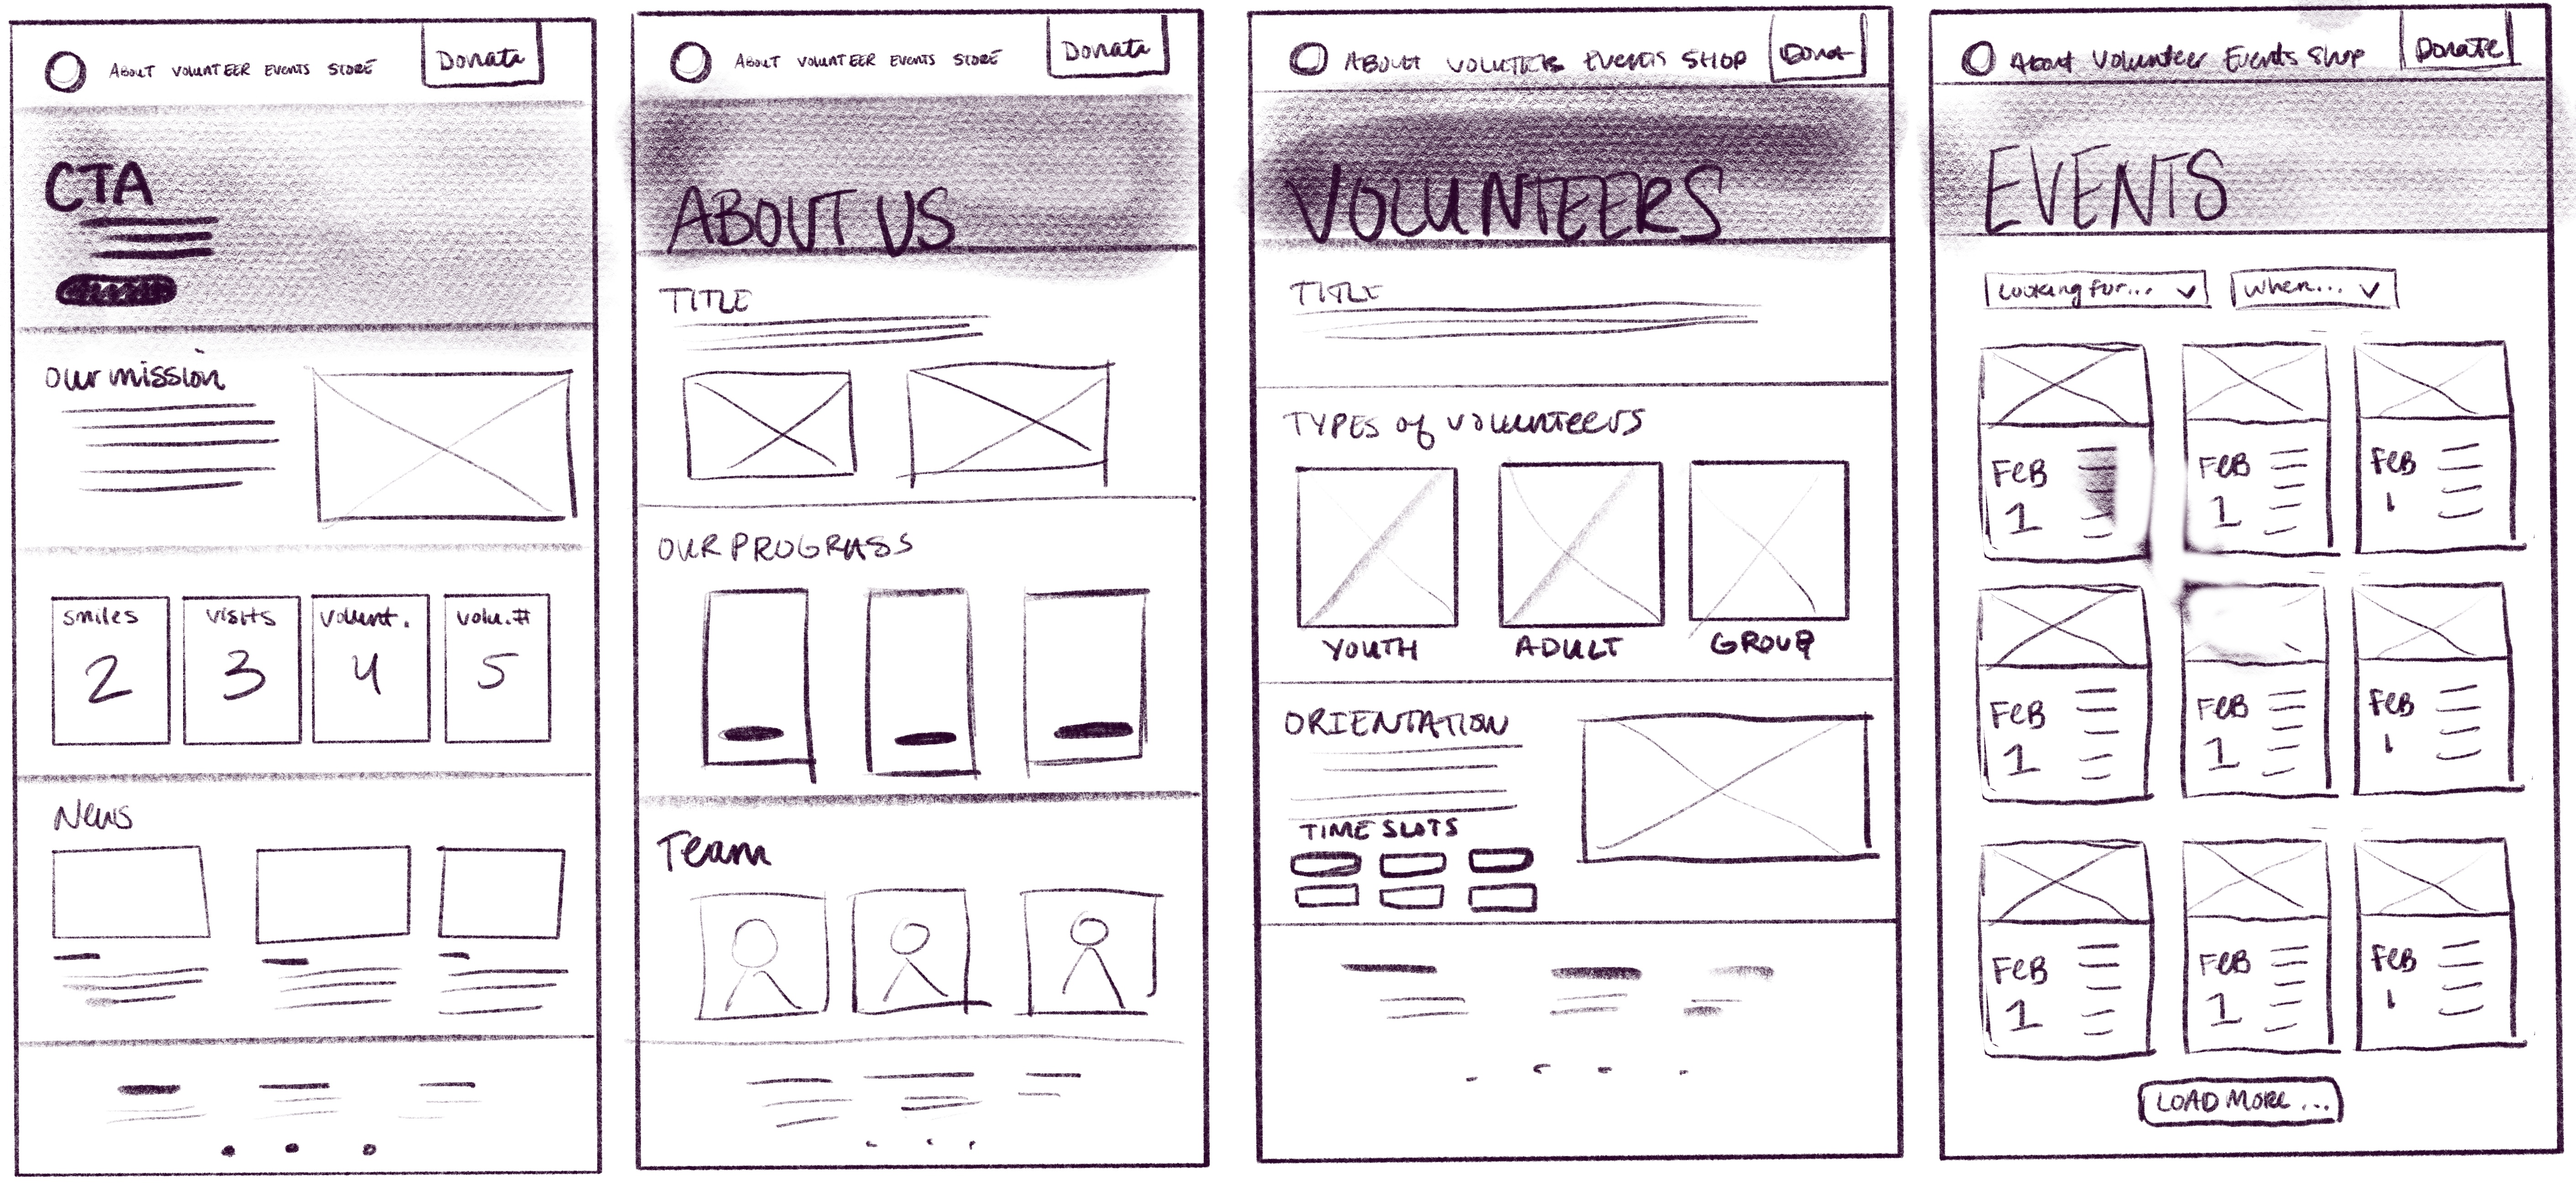 ABOUT VOLUNTEER EVENTS STORE Donate
CTA
Our mission
smiles visits volunt. volu.#
2 3 4 5
News
ABOUT VOLUNTEER EVENTS STORE Donate
ABOUT US
TITLE
OUR PROGRASS
Team
ABOUT VOLUTEER EVENTS SHOP Donat
VOLUNTEERS
TITLE
TYPES of volunteers
YOUTH ADULT GROUP
ORIENTATION
TIME SLOTS
About Volunteer Events Shop Donate
EVENTS
Looking for... When...
FEB FEB FEB
1 1 1
FEB FEB FEB
1 1 1
FEB FEB FEB
1 1 1
LOAD MORE...